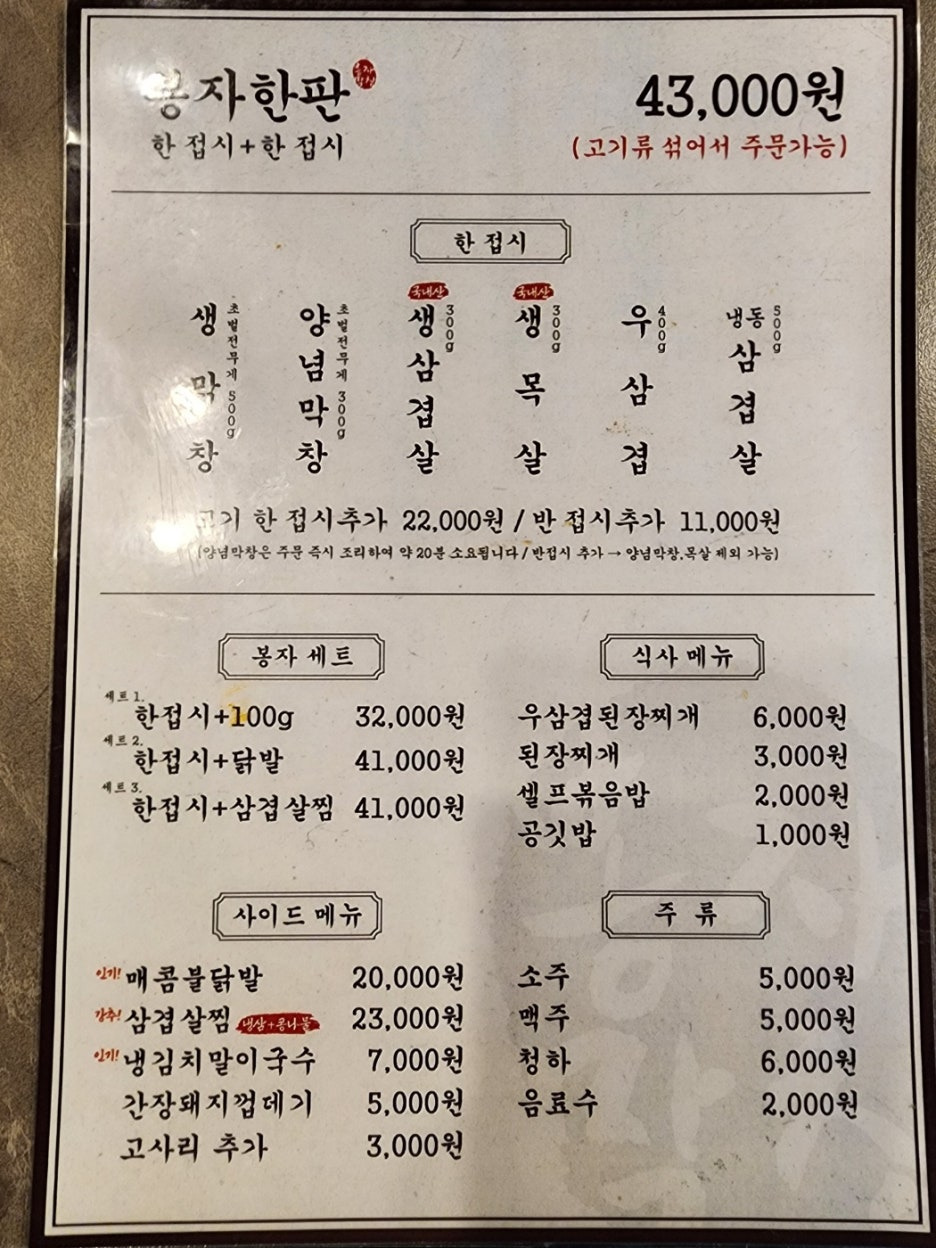 봉자한판 43,000원
한 접시+한 접시 (고기류 섞어서 주문가능)
한 접시
생막창 초벌전무게 500g
양념막창 초벌전무게 300g
국내산 생삼겹살 300g
국내산 생목살 300g
우삼겹 400g
냉동삼겹살 500g
고기 한 접시추가 22,000원 / 반 접시추가 11,000원
(양념막창은 주문 즉시 조리하여 약 20분 소요됩니다 / 반접시 추가 → 양념막창,목살 제외 가능)
봉자 세트
세트 1.
한접시+100g 32,000원
세트 2.
한접시+닭발 41,000원
세트 3.
한접시+삼겹살찜 41,000원
식사 메뉴
우삼겹된장찌개 6,000원
된장찌개 3,000원
셀프볶음밥 2,000원
공깃밥 1,000원
사이드 메뉴
인기! 매콤불닭발 20,000원
강추! 삼겹살찜 냉삼+콩나물 23,000원
인기! 냉김치말이국수 7,000원
간장돼지껍데기 5,000원
고사리 추가 3,000원
주 류
소주 5,000원
맥주 5,000원
청하 6,000원
음료수 2,000원